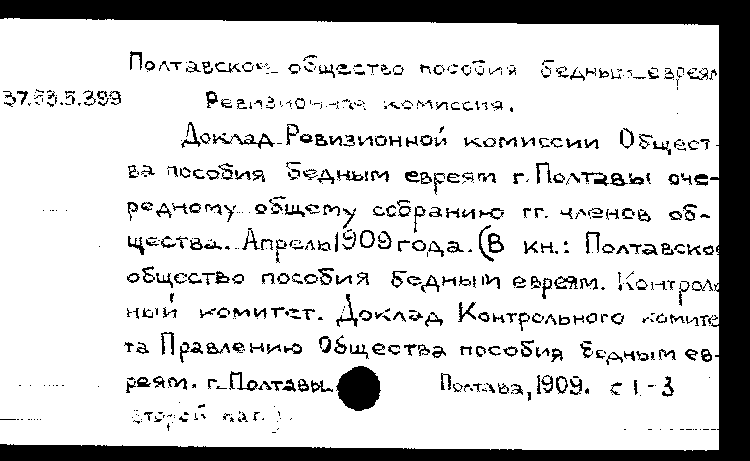 Полтавское общество пособия бедным евреям
37.53.5.399 Ревизионная комиссия.
Доклад Ревизионной комиссии Общест-
ва пособия бедным евреям г. Полтавы оче-
редному общему собранию гг. членов об-
щества. Апрель 1909 года. (В кн.: Полтавское
общество пособия бедным евреям. Контроль
ный комитет. Доклад Контрольного комите
та Правлению Общества пособия бедным ев-
реям. г. Полтавы. Полтава, 1909. с 1-3
второй паг.).